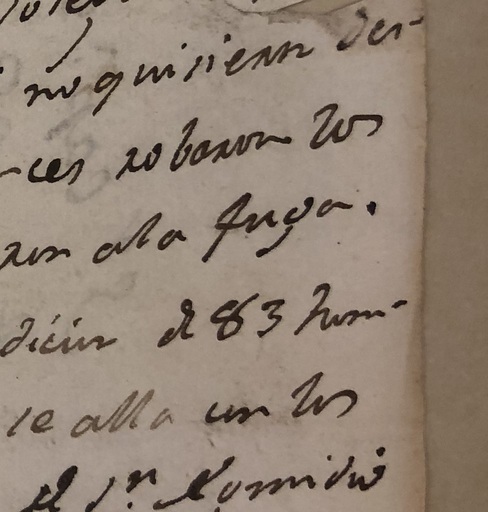 no quisieran des-
-ces robaron los
ron a la fuga.
dición de 83 hom-
se alla con los
el Sr. Comisio